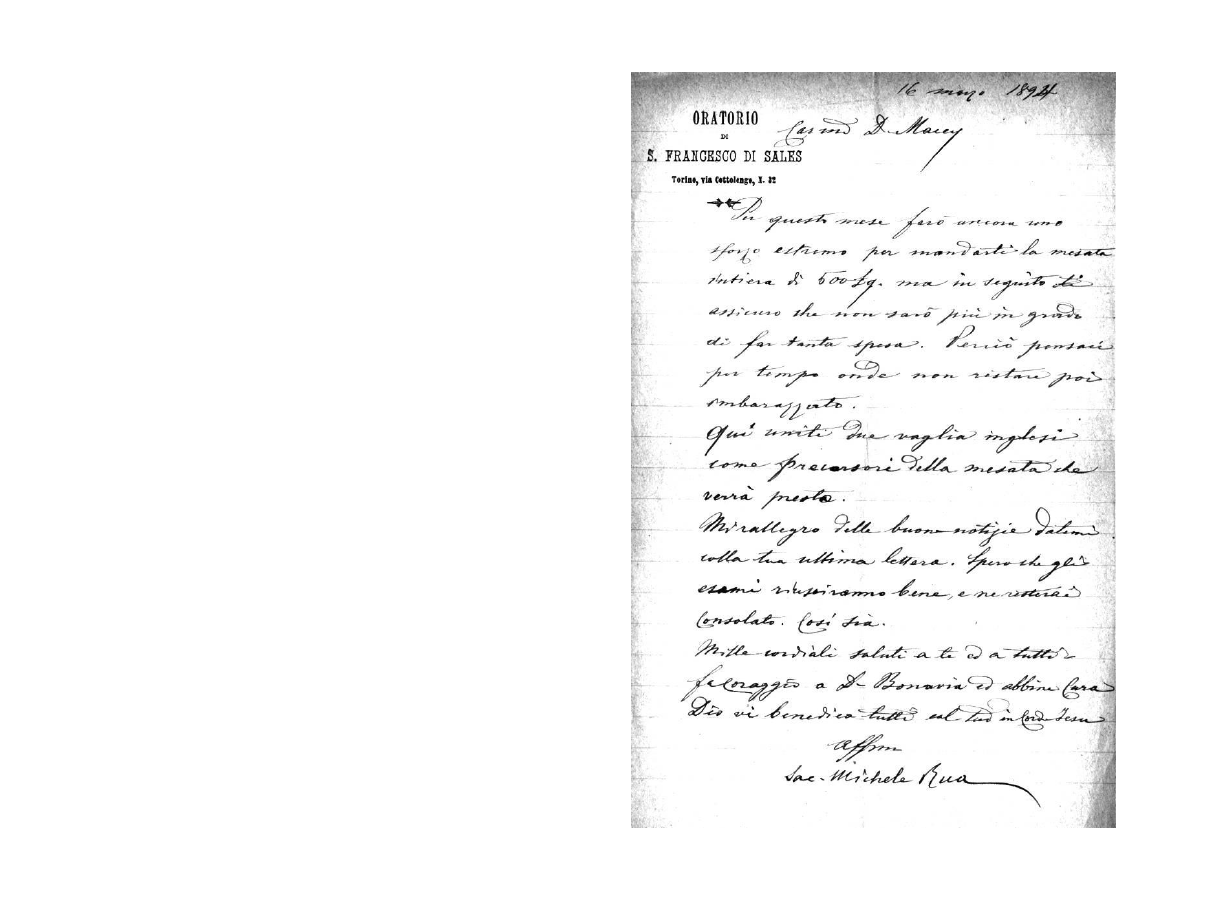 16 marzo 1894
ORATORIO
DI
S. FRANCESCO DI SALES
Torino, via Cottolengo, N. 32
Car.mo D. Macey
Per questo mese farò ancora uno
sforzo estremo per mandarti la mesata
intiera di 500 Lg. ma in seguito ti
assicuro che non sarò più in grado
di far tanta spesa. Perciò pensaci
per tempo onde non restare poi
imbarazzato.
Qui uniti due vaglia inglesi
come precursori della mesata che
verrà presto.
Mi rallegro delle buone notizie datemi
colla tua ultima lettera. Spero che gli
esami riusciranno bene, e ne resterai
consolato. Così sia.
Mille cordiali saluti a te ed a tutti
fa coraggio a D. Bonavia ed abbine cura
Dio vi benedica tutti col tuo in Corde Jesu
Aff.mo
Sac. Michele Rua